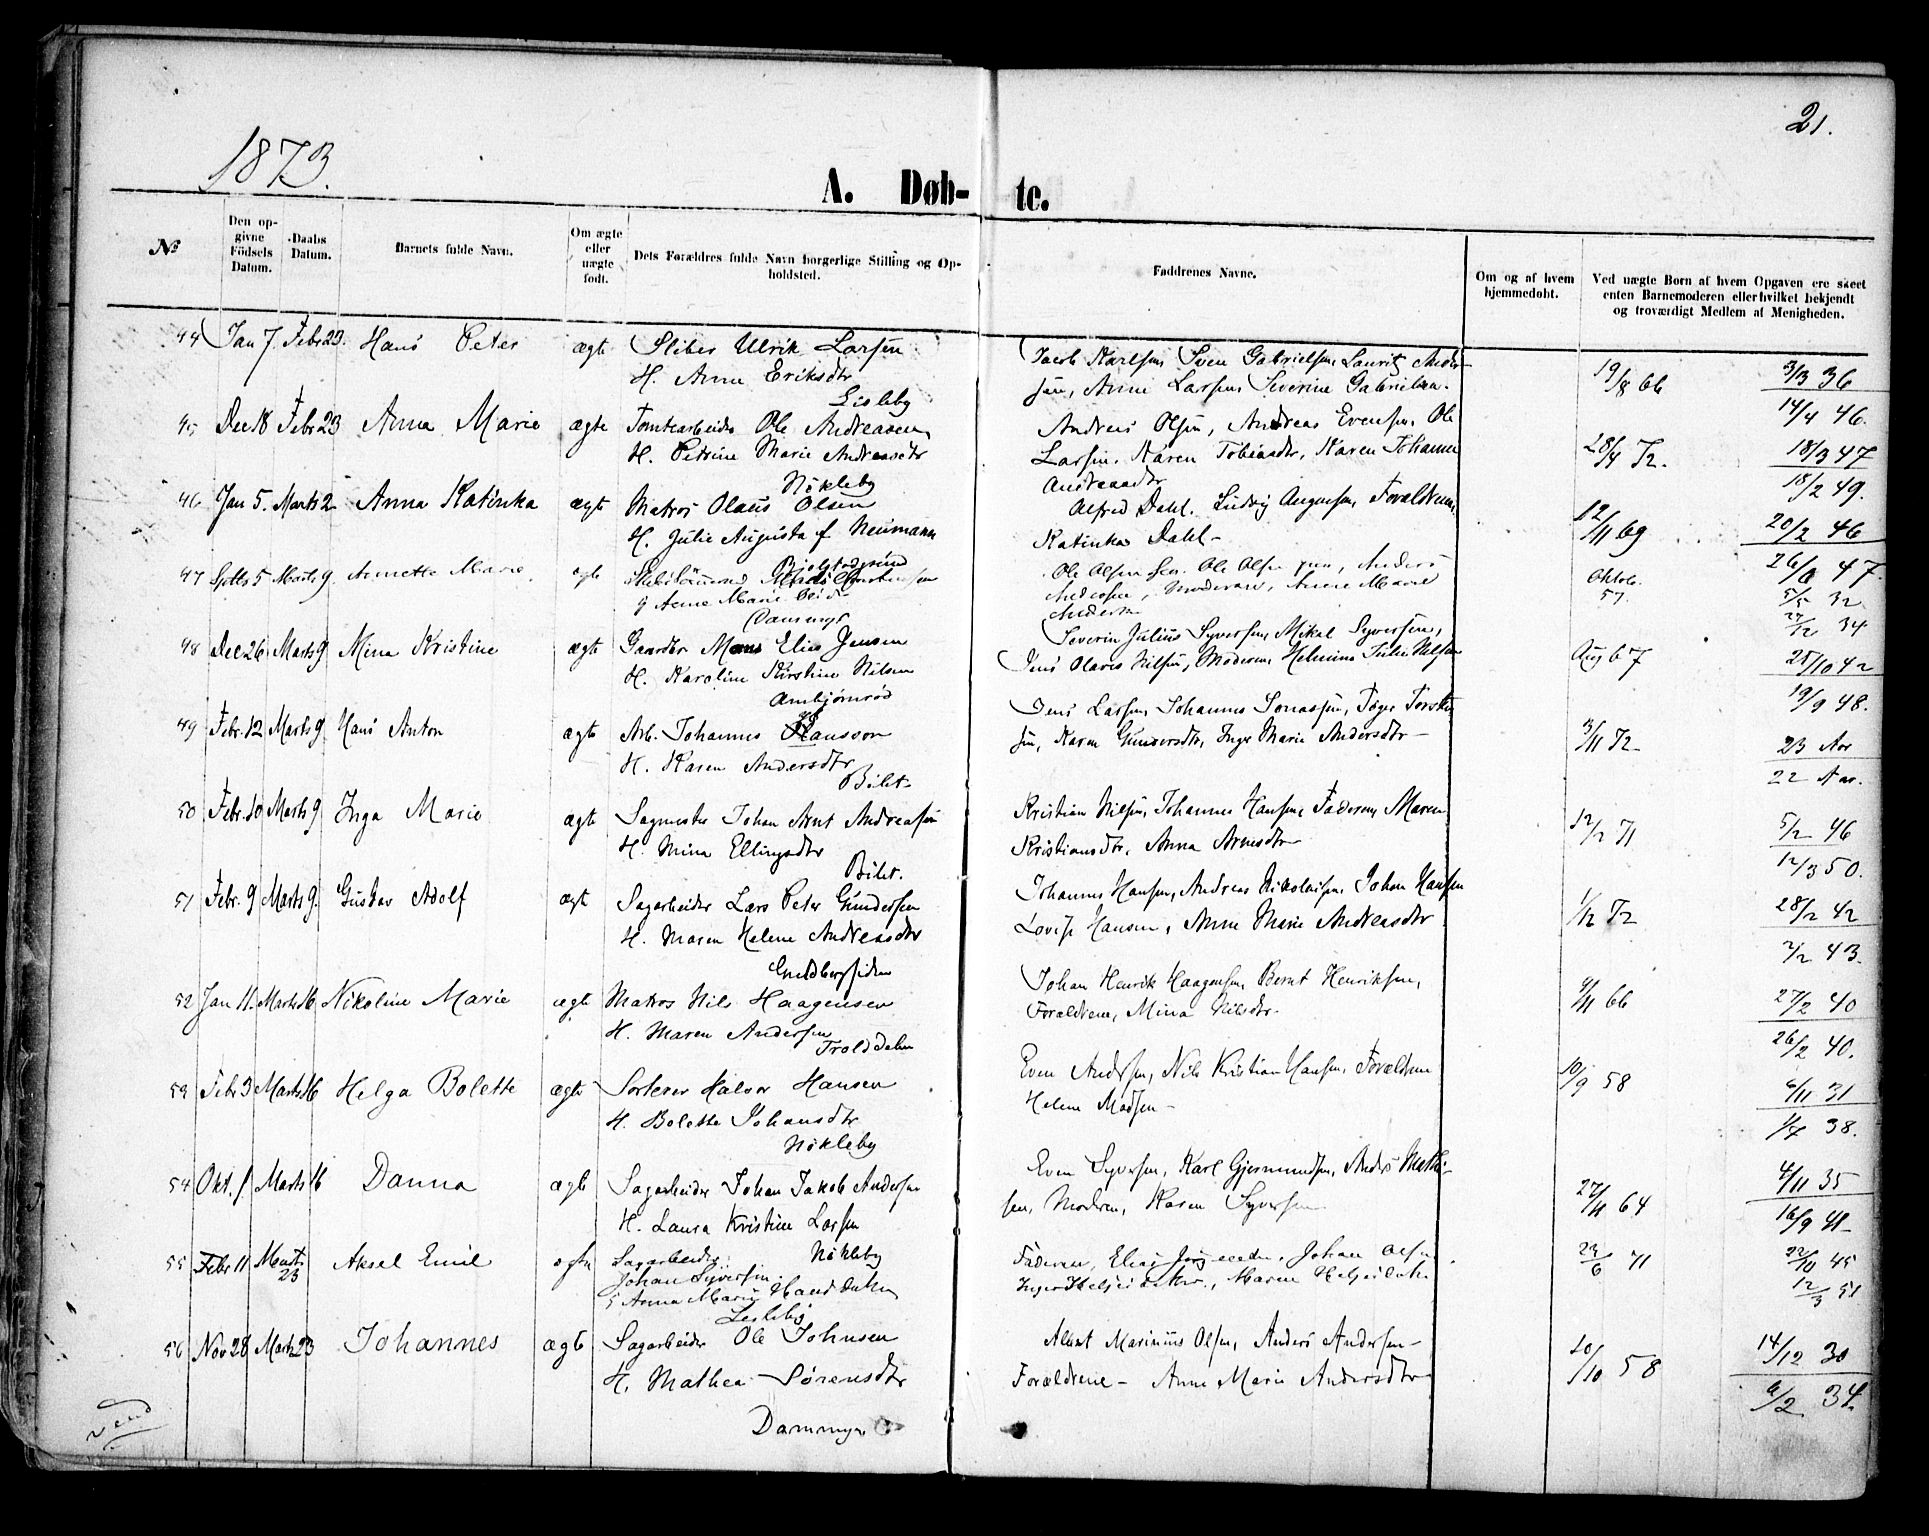 21.
1873.
A. Døb- te.
№
Den opgivne Födsels Datum.
Daabs Datum.
Barnets fulde Navn.
Om ægte eller uægte født.
Dets Forældres fulde Navn borgerlige Stilling og Opholdsted.
Faddrenes Navne.
Om og af hvem hjemmedøbt.
Ved uægte Børn af hvem Opgaven ere skeet enten Barnemoderen eller hvilket bekjendt og troværdigt Medlem af Menigheden.
44 Jan 7. Febr 23. Hans Peter ægte Sliber Ulrik Larsen
H. Anne Eriksdtr
Lisleby
Jacob Karlsen, Sven Gabrielsen, Lauritz Ander-
sen, Anne Larsen, Severine Gabrielsen.
19/8 66 3/3 36
14/4 46.
45 Dec 18 Febr 23 Anna Marie ægte Tomtearbeider Ole Andreasen,
H. Petrine Marie Andreasdtr
Nökleby
Andreas Olsen, Andreas Evensen, Ole
Larsen, Karen Tobiasdtr, Karen Johanne
Andreasdtr
28/4 72. 18/3 47
18/2 49.
46 Jan 5. Marts 2 Anna Katinka ægte Matros Olaus Olsen
H. Julie Augusta f Neumann
Alfred Dahl, Ludvig Augensen, Forældrene,
Katinka Dahl -
12/11 69 20/2 46
26/6 47.
47 Septb 5 Marts 9. Annette Marie ægte
g Anne Marie
Dammyr
Ole Olsen Sen. Ole Olsen jun, Anders
Andersen, Moderen, Anne Marie
Andersen
Oktob. 57. 5/5 32
34
48 Dec 26 Marts 9 Mina Kristine ægte Gaardbr Elias Jensen
H. Karoline Kirstine Nilsen
Ambjørnrød
Severin Julius Syversen, Mikal Syversen,
Jens Olaves Nilsen, Moderen, Helmine Julie Nilsen
Aug 67 25/10 42
19/9 48.
49 Febr. 12 Marts 9 Hans Anton ægte Arb. Johannes Hansson
H. Karen Andersdtr
Bilet.
Jens Larsen, Johannes Jonassen, Torsten-
sen, Karen Gundersdtr, Inge Marie Andersdtr -
3/11 72 23 Aar
22 Aar.
50 Febr. 10 Marts 9 Inga Marie ægte Sagmester Johan Arnt Andreasen
H. Mina Ellingsdtr
Bilet.
Kristian Nilsen, Johannes Hansen, Faderen, Maren
Kristiansdtr, Anna Arnesdtr
12/2 71 5/2 46
12/3 50.
51 Febr. 9 Marts 9. Gustav Adolf ægt Sagarbeider Lars Peter Gundersen
H. Maren Helene Andreasdtr
Guldbergsiden
Johannes Hansen, Andreas Nikolaisen, Johan Hansen
Lovise Hansen, Anne Marie Andreasdtr
1/12 72 28/2 42
2/2 43.
52 Jan 11. Marts 16 Nikoline Marie ægte Matros Nils Haagensen
H. Maren Andersen
Trolddalen
Johan Henrik Haagensen, Bernt Henriksen,
Forældrene, Mina Nilsdtr.
9/11 66 27/2 40
26/2 40.
53 Febr 3 Marts 16 Helga Bolette ægte Sorterer Halvor Hansen
H. Bolette Johansdtr
Nökleby
Even Andersen, Nils Kristian Hansen, Forældrene
Helene Madsen -
10/9 58 6/11 31
1/7 38.
54 Okt. 1 Marts 16 Danna ægte Sagarbeider Johan Jakob Andersen
H. Laura Kristine Larsen
Nökleby
Even Syversen, Karl Gjermundsen, Anders Mathi-
sen, Moderen, Karen Syversen
27/11 64 4/11 35
16/9 41
55 Febr 11 Marts 23 Aksel Emil ægte Sagarbeider
Johan Syversen
Lisleby
Faderen, Johan Olsen
71 22/10 45
12/3 51
56 Nov 28 Marts 23 Johannes ægte Sagarbeider Ole Johnsen
H. Mathea Sørensdtr
Dammyr
Albert Marinius Olsen, Anders Andersen -
Forældrene - Anne Marie Andersdtr
20/10 58 14/12 30
9/2 34.
vend